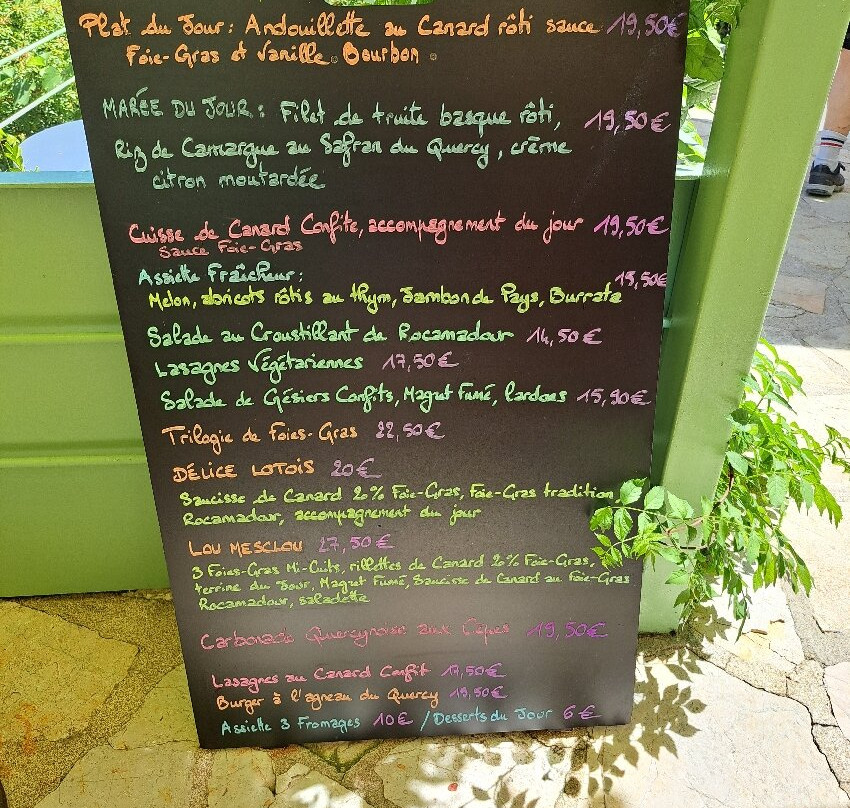 Plat du Jour: Andouillette au Canard rôti sauce 19,50€
Foie-Gras et Vanille Bourbon
MARÉE DU JOUR: Filet de truite basque rôti, 19,50€
Riz de Camargue au Safran du Quercy, crème
citron moutardée
Cuisse de Canard Confite, accompagnement du jour 19,50€
Sauce Foie-Gras
Assiette Fraîcheur: 15,50€
Melon, abricots rôtis au thym, Jambon de Pays, Burrata
Salade au Croustillant de Rocamadour 14,50€
Lasagnes Végétariennes 17,50€
Salade de Gésiers Confits, Magret Fumé, lardons 15,90€
Trilogie de Foies-Gras 22,50€
DÉLICE LOTOIS 20€
Saucisse de Canard 20% Foie-Gras, Foie-Gras tradition,
Rocamadour, accompagnement du jour
LOU MESCLOU 27,50€
3 Foies-Gras Mi-Cuits, rillettes de Canard 20% Foie-Gras,
terrine du Jour, Magret Fumé, Saucisse de Canard au Foie-Gras
Rocamadour, saladette
Carbonade Quercynoise aux Cèpes 19,50€
Lasagnes au Canard Confit 17,50€
Burger à l'agneau du Quercy 19,50€
Assiette 3 Fromages 10€ / Desserts du Jour 6€